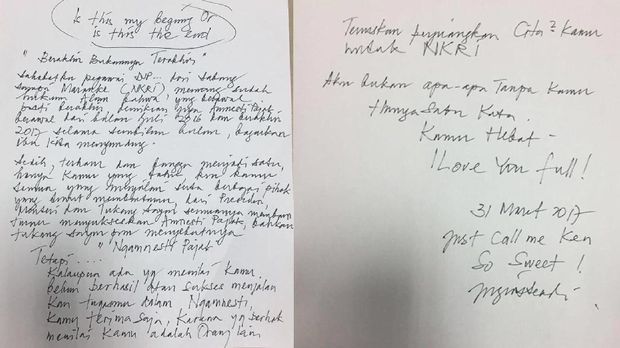 Is this my begining Or
is this the end
"Berakhir Bukannya Terakhir"
Sahabatku pegawai DJP... dari Sabang
Sampai Marauke (NKRI) memang sudah
hukum Alam bahwa yang berawal
pasti berakhir, demikian juga Amnesti Pajak
berawal dari bulan Juli 2016 dan berakhir
2017 selama sembilan bulan, bagaikan
Ibu kita mengandung.
Sedih, terharu dan bangga menjadi satu,
hanya kamu yang tahu dan kamu
semua yang menjalani serta berbagai pihak
yang ikut membantumu, dari Presiden,
Menteri dan tukang sayur semuanya
menyukseskan Amnesti Pajak, bahkan
tukang sayur pun menyebutnya
"Ngamnesti Pajak"
Tetapi.....
Kalaupun ada yg menilai kamu
belum berhasil atau sukses menjalan
kan tugasmu dalam Ngamnesti,
kamu terima saja, karena yg berhak
menilai kamu adalah Orang lain
Teruskan perjuangkan Cita2 kamu
untuk NKRI
Aku bukan apa-apa Tanpa Kamu
Hanya Satu Kata
Kamu Hebat -
I Love You full!
31 Maret 2017
Just Call me Ken
So Sweet!